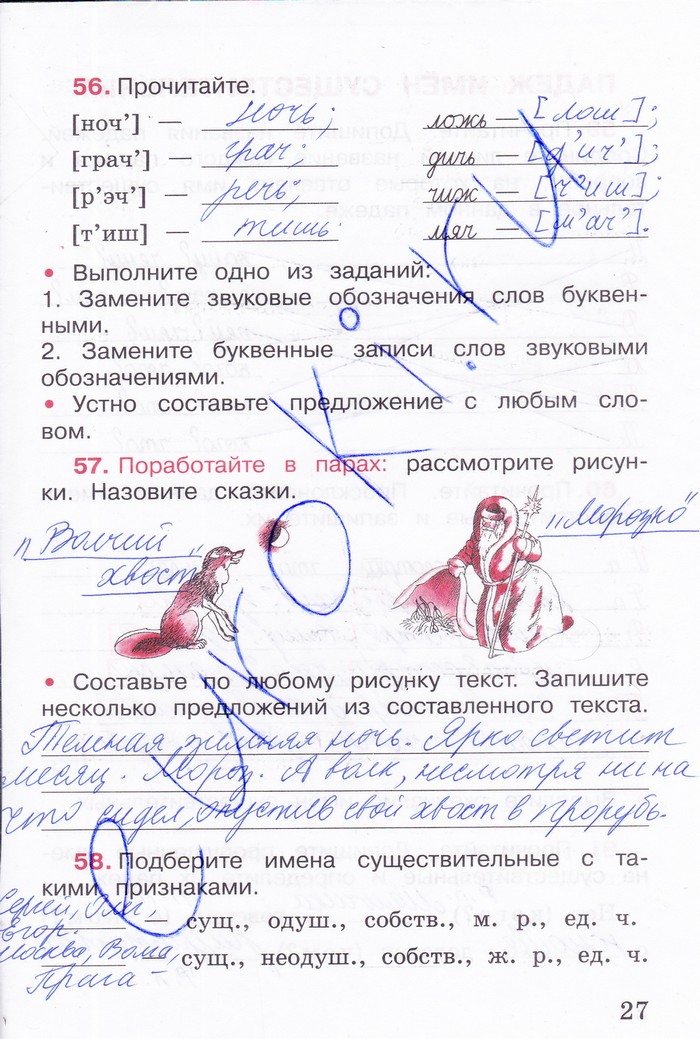 56. Прочитайте.
[ноч'] — ночь; ложь — [лош];
[грач'] — грач; дичь — [д'ич'];
[р'эч'] — речь; чиж — [ч'иш];
[т'иш] — тишь мяч — [м'ач'].
• Выполните одно из заданий:
1. Замените звуковые обозначения слов буквен-
ными.
2. Замените буквенные записи слов звуковыми
обозначениями.
• Устно составьте предложение с любым сло-
вом.
57. Поработайте в парах: рассмотрите рисун-
ки. Назовите сказки.
„Морозко"
„Волчий
хвост"
• Составьте по любому рисунку текст. Запишите
несколько предложений из составленного текста.
Темная зимняя ночь. Ярко светит
месяц. Мороз. А волк, несмотря ни на
что сидел, опустив свой хвост в прорубь.
58. Подберите имена существительные с та-
кими признаками.
Сергей, Олег,
Егор. — сущ., одуш., собств., м. р., ед. ч.
Москва, Волга,
— сущ., неодуш., собств., ж. р., ед. ч.
Прага —
27